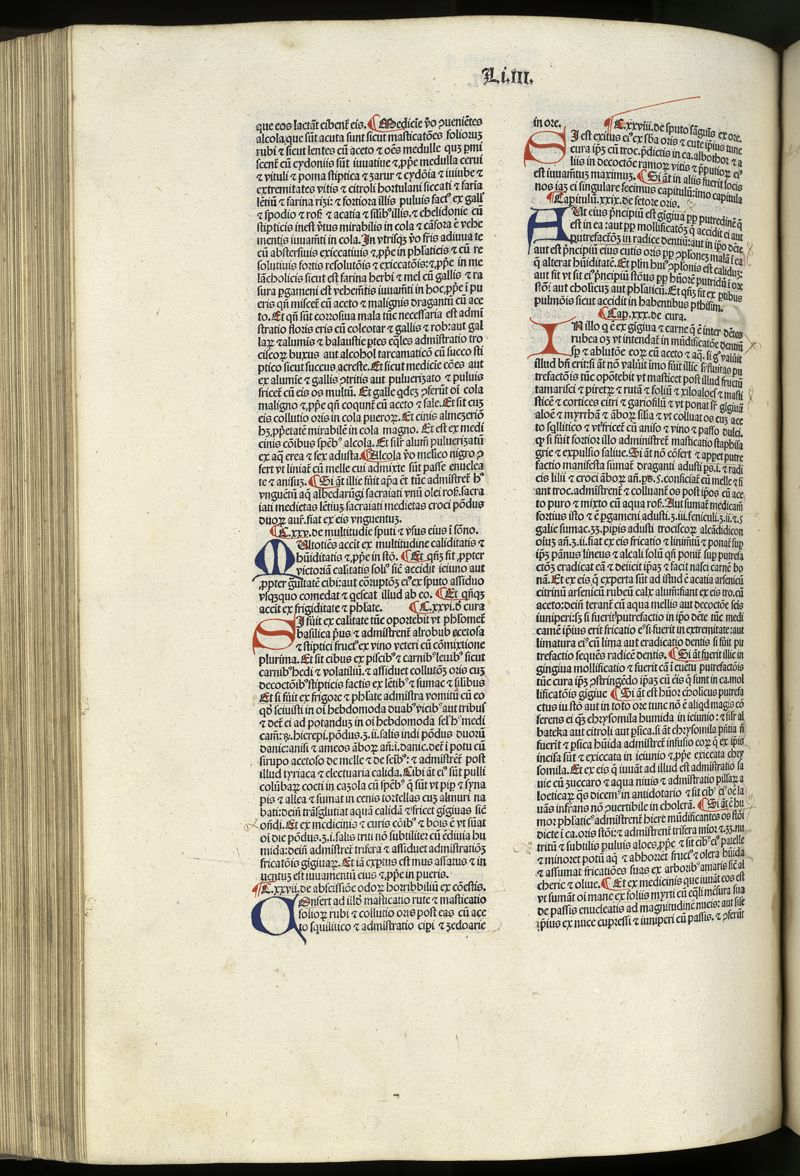 Li.III.
que eos lactāt cibent̄ eis. ¶ Medicīe v̄o ꝯueniētes
alcola, que sūt acuta sunt sicut masticatōes foliorum
rubi ⁊ sicut lentes cū aceto ⁊ oēs medulle quas pmi
scent̄ cū cydoniis sūt iuuatiue ⁊ ꝓpͤ medulla cerui
⁊ vituli ⁊ poma stiptica ⁊ zarur ⁊ cydōia ⁊ iuiube ⁊
extremitates vitis ⁊ citroli hortulani siccati ⁊ faria
lētiū ⁊ farina rizi: ⁊ fortiora illis puluis factꝰ ex gall'
⁊ spodio ⁊ ros̄ ⁊ acatia ⁊ silibꝰ illis. ⁊ chelidonie cū
stipticis inest v̄tus mirabilis in cola ⁊ cāfora ē vehe
mentis iuuamīti in cola. In vtrisqꝫ v̄o fris adiuua te
cū abstersiuis exiccatiuis ⁊ ꝓpͤ in phlaticis ⁊ cū re
solutiuis fortis resolutōis ⁊ exiccatōis: ⁊ ꝓpͤ in me
lācholicis sicut est farina herbi ⁊ mel cū gallis ⁊ ra
sura pgameni est vehemētis iuuamīti in hoc, ꝓpͤ ī pu
eris qn̄ miscet̄ cū aceto ⁊ malignis dragantū cū ace
to. Et qn̄ sūt corrosiua mala tūc necessaria est admī
stratio floris eris cū colcotar ⁊ gallis ⁊ rob: aut gal
laꝝ ⁊ alumīs ⁊ balaustie ꝑtes eq̄les admīstratio tro
ciscoꝝ buxus aut alcohol tarcamaticō cū succo sti
ptico sicut succus acreste. Et sicut medicīe cōes aut
ex alumīe ⁊ gallis ꝯtritis aut puluerizato ⁊ puluis
fricet̄ cū eis os multū. Et galle qdeꝫ ꝯferūt oī cola
maligno ⁊ ꝓpͤ qn̄ coqunt̄ cū aceto ⁊ sale. Et sit cuꝫ
eis collutio oris in cola pueroꝝ. Et cinis almezeriō
hꝫ ꝓpetatē mirabilē in cola magno. Et est ex medi
cinis cōibus spēbꝰ alcola. Et silr̄ alum̄ puluerizatū
ex aq̄ erea ⁊ fex adusta. ¶ Alcola v̄o melīco nigro ꝯ
fert vt liniat̄ cū melle cui admixte sūt passe enuclea
te ⁊ anisuꝫ. ¶ Si āt illic fuit apa ēt tūc admīstret̄ hͦ
vnguētū aq̄ albedarūgi sacraiati vnū olei ros̄. sacra
iati medietas lētiuꝫ sacraiati medietas croci pōdus
duoꝝ aur̄. fiat ex eis vnguentuꝫ.
¶ C. xxv. de multitudīe sputi ⁊ vsus eius ī sōno.
MUltotiēs accīt ex multitudine caliditatis ⁊
hūiditatis ⁊ ꝓpͤ in stō. ¶ Et qn̄qꝫ fit ꝓpter
victoriā caliditatis solīꝰ sic accidit ieiuno aut
ꝓpter gulitatē cibi: aut corūptōꝫ eiꝰ ex sputo assiduo
vsqꝫquo comedat ⁊ q̄scat illud ab eo. ¶ Et qn̄qꝫ
accīt ex frigiditate ⁊ phlate. ¶ C. xxvi. d̄ cura
SI fuit ex calitate tūc oportebit vt phlomet̄
basilica p̄us ⁊ admīstrent̄ alrobub acetosa
⁊ stiptici fructꝰ ex vino veteri cū cōmixtione
plurima. Et sit cibus ex piscibꝰ ⁊ carnibꝰ leuibꝰ sicut
carnibꝰ hedi ⁊ volatiliū. ⁊ assiduet collutōꝫ oris cuꝫ
decoctōibꝰ stipticis factis ex lētibꝰ ⁊ sumac ⁊ silibus
Et si fuit ex frigore ⁊ phlate admīstra vomitū cū eo
qd sciuisti in oī hebdomoda duabꝰ vicibꝰ aut tribus
⁊ det̄ ei ad potanduꝫ in oī hebdomoda sel hͦ medi
cam̄: ℞. hierepi. pōdus. ʒ. ii. salis indi pōdus duorū
danic: anisi ⁊ ameos āboꝝ an̄. i. danic. det̄ ī potu cū
sirupo acetoso de melle ⁊ de seibꝰ: ⁊ admīstret̄ post
illud tyriaca ⁊ electuaria calida. Cibi āt eiꝰ sūt pulli
colūbaꝝ cocti in cazola cū spēbꝰ q̄ sūt vt pip̄ ⁊ syna
pis ⁊ allea ⁊ sumat in cenis tortellas cuꝫ almuri na
bati: deīn trāsglutiat aquā calidā ⁊ fricet gigiuas sic
ondi. Et ex medicinis ⁊ curis cōibꝰ ⁊ bōis ē vt sūat
oī die pōdus. ʒ. i. salis triti nō subtiliter cū ēdiuia hu
mida: deīn admīstret̄ trifera ⁊ assiduet admīstratiōꝫ
fricatōis gigiuaꝝ. Et iā exptus est mus assatus ⁊ in
uentus est iuuamentū eius ⁊ ꝓpͤ in pueris.
¶ C. xxvii. de abscissiōe odoꝝ horribbiliū ex comestis.
COnfert ad illd̄ masticatio rute ⁊ masticatio
folioꝝ rubi ⁊ collutio oris post eas cū ace
to squilitico ⁊ admīstratio cipi ⁊ zedoarie
in ore. ¶ C. xxviii. de sputo sāguīs ex ore.
SI est exitus eiꝰ ex sb̄a oris ⁊ cute ipīus tunc
cura ipꝫ cū troc. p̄dictis in ca. albothor ⁊ a
liis in decoctōe ramoꝝ vitis ⁊ ꝓputioꝝ eiꝰ
est iuuamētuꝫ maximuꝫ. ¶ Si āt in aliis fuerit locis
nos iaꝫ ei singulare fecimus capitulū: imo capitula
¶ Capitulū. xxix. de fetore oris.
AUt eius p̄ncipiū est gigiua pp putredinē q̄
est in ea: aut pp mollificatōꝫ q̄ accidit ei aut
putrefactōꝫ in radice dentiū: aut in ipō dēte
aut est p̄ncipiū eius cutis oris pp ꝯplōneꝫ malā ī ea
q̄ alterat hūiditatē. Et plm̄ huiꝰ ꝯplōnis est calidus:
aut fit vt sit eiꝰ p̄ncipiū stōus pp hūorē putridū ī ore
stōi: aut cholicuꝫ aut phlaticū. Et qn̄qꝫ fit ex ptibus
pulmōis sicut accidit in habentibus pthisim.
¶ Cap. xxx. de cura.
IN illo q̄ ē ex gigiua ⁊ carne q̄ ē inter dētes
rubea oꝫ vt intendat̄ in mūdificatōe dentiū
sp̄ ⁊ ablutōe eoꝝ cū aceto ⁊ aq̄. si gͦ valūit
illud bn̄ erit: si āt nō valūit imo fuit illic siffuitas pu
trefactōis tūc opōtebit vt masticet post illud fructū
tamarisci ⁊ piretꝝ ⁊ rutā ⁊ foliū ⁊ xiloaloes ⁊ masti
sticē ⁊ cortices citri ⁊ gariofilū ⁊ vt ponat sr̄ gigiuā
aloē ⁊ myrrhā ⁊ āboꝝ silia ⁊ vt colluat os cuꝫ ace
to sqllitico ⁊ vt fricet̄ cū aniso ⁊ vino ⁊ passo dulci.
Qͥ si fuit fortior illo admīstret̄ masticatio staphisa
grie ⁊ expulsio saliue. Si āt nō cōsert ⁊ appet putre
factio manifesta sumat̄ draganti adusti ps. i. ⁊ radi
cis lilii ⁊ croci āboꝝ an̄. pts. 5. conficiat̄ cū melle ⁊ fi
ant troc. admīstrent̄ ⁊ colluant̄ os post ipōs cū ace
to puro ⁊ mixto cū aqua ros̄. Aut sumat̄ medicam̄
fortius isto ⁊ ē pgameni adusti. ʒ. iii. feniculi. ʒ. ii. ⁊. s̄
galie sumac. ʒʒ. pipis adusti trociscoꝝ alcadidicon
oīuꝫ an̄. ʒ. ii. fiat ex eis fricatio ⁊ liniūntū ⁊ ponat̄ sup
ipꝫ pānus lineus ⁊ alcali solū qn̄ ponit̄ sup putrefa
ctōꝫ eradicat eā ⁊ deiicit ipaꝫ ⁊ facit nasci carnē bo
nā. Et ex eis q̄ experta sūt ad istud ē acatia arsenicū
citrinū arsenicū rubeū calx alum̄: fiant ex eis tro. cū
aceto: deīn terant̄ cū aqua mellis aut decoctōe seis
iuniperi: sꝫ si fuerit putrefactio in ipō dēte tūc medi
camē ipīus erit fricatio eꝰ si fuerit in extremitate: aut
limatura eiꝰ cū lima aut eradicatio dentis si fuit pu
trefactio sequēs radicē dentis. ¶ Si āt fuerit illic in
gingiua mollificatio ⁊ fuerit cā ī euētu putrefactōis
tūc cura ipaꝫ ꝯstringēdo ipaꝫ cū eis q̄ sunt in ca. mol
lificatōis gigiue ¶ Si āt est hūor cholicus putrefa
ctus iu stō aut in toto ore tunc nō ē aliqd magis cō
ferens ei qꝫ chrysomila humida in ieiunio: ⁊ silr̄ al
bateka aut citroli aut psica. si āt chrysomila p̄ntia n̄
fuerit ⁊ psica hūida admīstret̄ infusio eoꝝ q̄ ex ipīs
incisa sūt ⁊ exiccata in ieiunio ⁊ ꝓpͤ exiccata chry
somila. Et ex eis q̄ iuuāt ad illud est admīstratio sa
uic cū zuccaro ⁊ aqua niuis ⁊ admīstratio pillaꝝ a
loeticaꝝ q̄s dicemꝰ in antidotario ⁊ sit cibꝰ eiꝰ oē la
uās infrigās nō ꝯuertibile in cholerā. ¶ Si āt ē hu
mor phlaticꝰ admīstrent̄ hiere mūdificantes os stōi
dicte ī ca. oris stōi: ⁊ admīstrent̄ trifera mīor ⁊ zz. nu
tritū ⁊ subtilis puluis aloes, ꝓpͤ ⁊ sit cibꝰ eiꝰ paielle
⁊ minoret potū aq̄ ⁊ abhoret̄ fructꝰ ⁊ olera hūida
⁊ assumat fricatiōes suas ex arboribꝰ amaris sic al
cheric ⁊ oliue. ¶ Et ex medicinis que iuuāt eos est
vt sumāt oī mane ex foliis myrti cū eq̄li mēsura sua
de passis enucleatis ad magnitudinē nucis: aut sile
ipīus ex nuce cupressi ⁊ iuniperi cū passis. ⁊ ꝯferūt